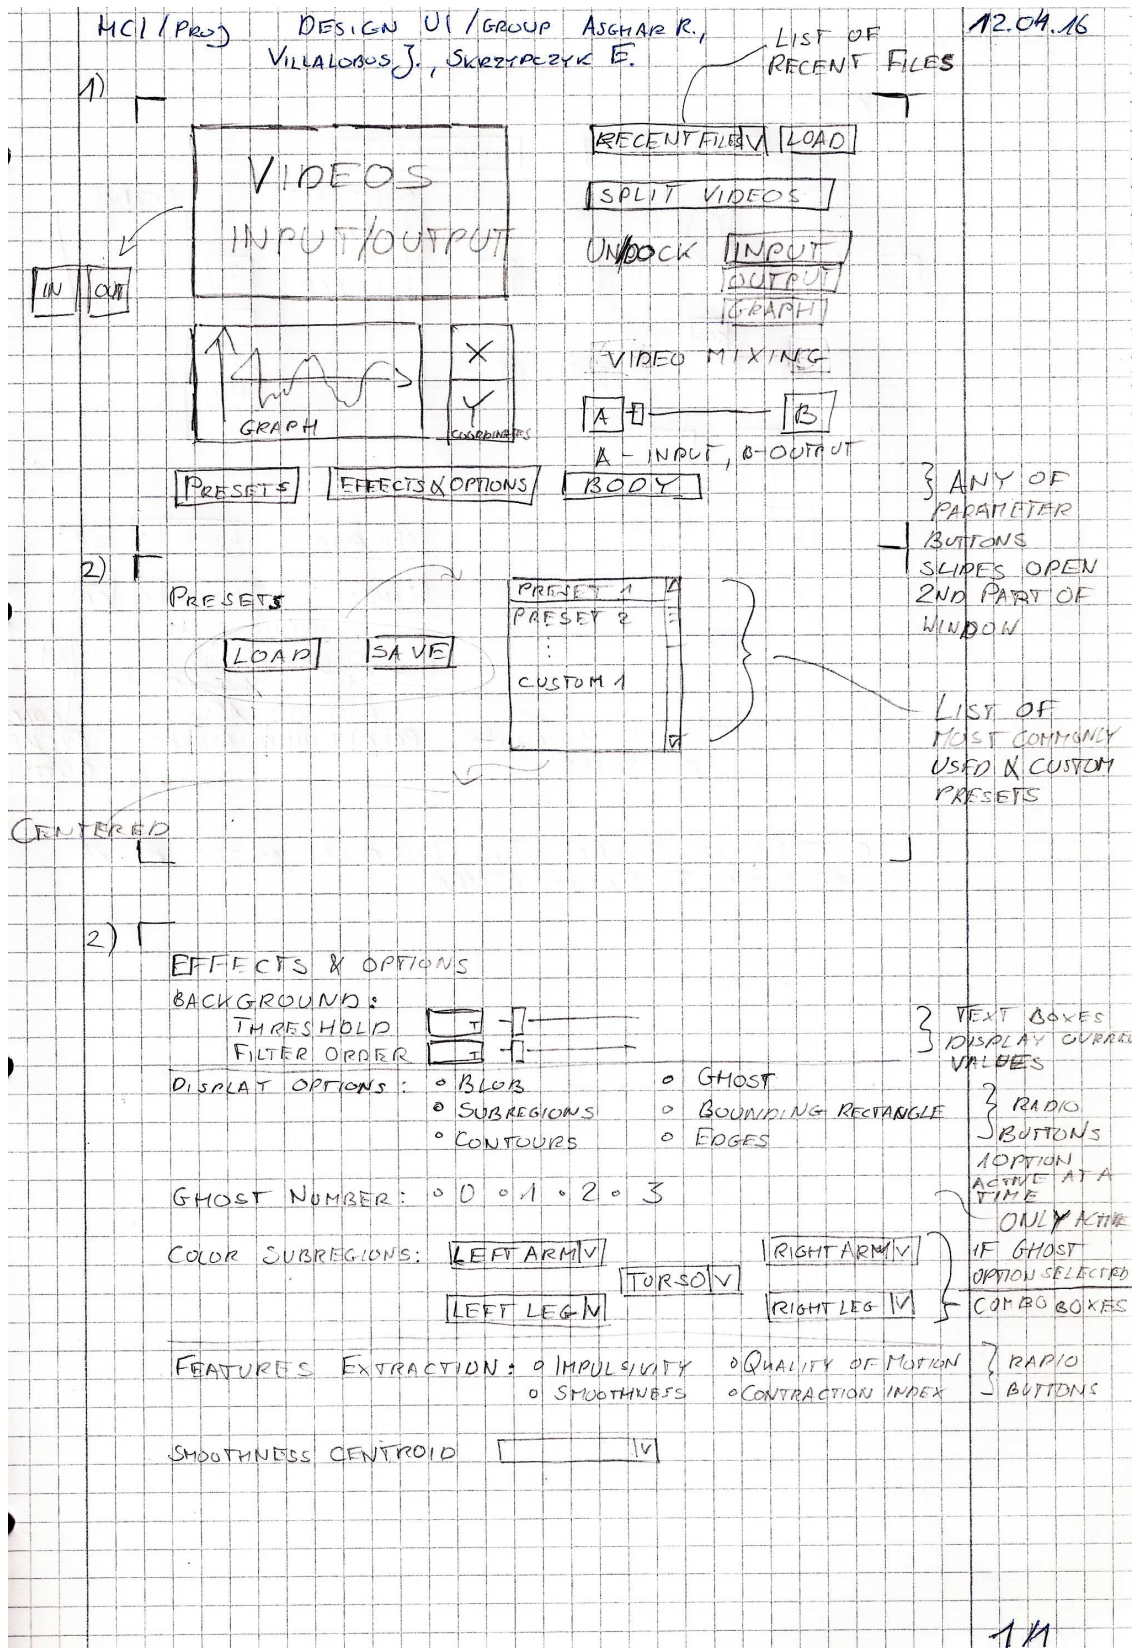 MCI/PROJ DESIGN UI/GROUP ASGHAR R., 12.04.16
VILLALOBUS J., SKRZYPCZYK E.
LIST OF
RECENT FILES
1)
VIDEOS
INPUT/OUTPUT
RECENT FILES V LOAD
SPLIT VIDEOS
UN/DOCK INPUT
OUTPUT
GRAPH
IN OUT
GRAPH
X
Y
COORDINATES
VIDEO MIXING
A B
A - INPUT, B-OUTPUT
PRESETS EFFECTS & OPTIONS BODY
} ANY OF
PARAMETER
BUTTONS
SLIDES OPEN
2ND PART OF
WINDOW
2)
PRESETS
LOAD SAVE
PRESET 1
PRESET 2
⋮
CUSTOM 1
LIST OF
MOST COMMONLY
USED & CUSTOM
PRESETS
CENTERED
2)
EFFECTS & OPTIONS
BACKGROUND:
THRESHOLD
FILTER ORDER
TEXT BOXES
DISPLAY CURRE
VALUES
DISPLAY OPTIONS: ∘ BLOB ∘ GHOST
∘ SUBREGIONS ∘ BOUNDING RECTANGLE
∘ CONTOURS ∘ EDGES
} RADIO
BUTTONS
1 OPTION
ACTIVE AT A
TIME
GHOST NUMBER: ∘ 0 ∘ 1 ∘ 2 ∘ 3
ONLY ACTIVE
IF GHOST
OPTION SELECTED
COLOR SUBREGIONS: LEFT ARM V RIGHT ARM V
TORSO V
LEFT LEG V RIGHT LEG V
COMBO BOXES
FEATURES EXTRACTION: ∘ IMPULSIVITY ∘ QUALITY OF MOTION
∘ SMOOTHNESS ∘ CONTRACTION INDEX
} RADIO
BUTTONS
SMOOTHNESS CENTROID V